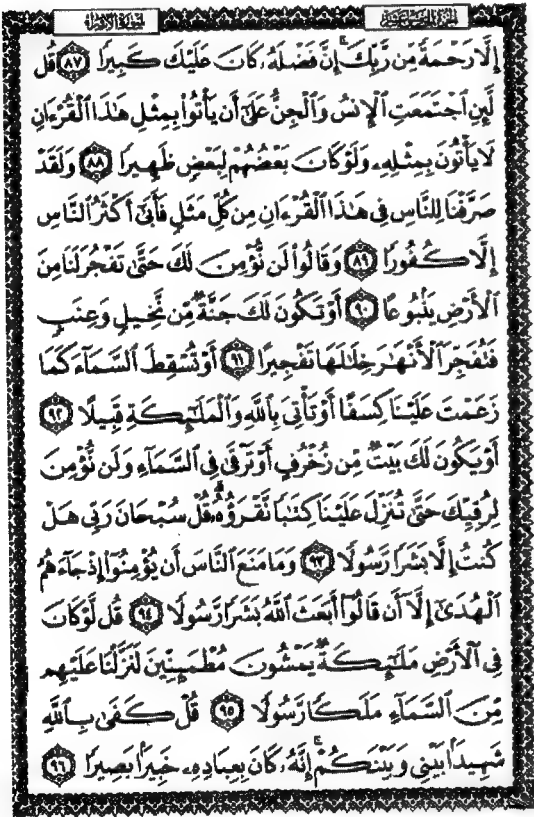 الجزء الخامس عشر
سورة الإسراء
إِلَّا رَحْمَةً مِّن رَّبِّكَ ۚ إِنَّ فَضْلَهُۥ كَانَ عَلَيْكَ كَبِيرًا ٨٧ قُل
لَّئِنِ ٱجْتَمَعَتِ ٱلْإِنسُ وَٱلْجِنُّ عَلَىٰٓ أَن يَأْتُوا۟ بِمِثْلِ هَٰذَا ٱلْقُرْءَانِ
لَا يَأْتُونَ بِمِثْلِهِۦ وَلَوْ كَانَ بَعْضُهُمْ لِبَعْضٍ ظَهِيرًا ٨٨ وَلَقَدْ
صَرَّفْنَا لِلنَّاسِ فِى هَٰذَا ٱلْقُرْءَانِ مِن كُلِّ مَثَلٍ فَأَبَىٰٓ أَكْثَرُ ٱلنَّاسِ
إِلَّا كُفُورًا ٨٩ وَقَالُوا۟ لَن نُّؤْمِنَ لَكَ حَتَّىٰ تَفْجُرَ لَنَا مِنَ
ٱلْأَرْضِ يَنۢبُوعًا ٩٠ أَوْ تَكُونَ لَكَ جَنَّةٌ مِّن نَّخِيلٍ وَعِنَبٍ
فَتُفَجِّرَ ٱلْأَنْهَٰرَ خِلَٰلَهَا تَفْجِيرًا ٩١ أَوْ تُسْقِطَ ٱلسَّمَآءَ كَمَا
زَعَمْتَ عَلَيْنَا كِسَفًا أَوْ تَأْتِىَ بِٱللَّهِ وَٱلْمَلَٰٓئِكَةِ قَبِيلًا ٩٢
أَوْ يَكُونَ لَكَ بَيْتٌ مِّن زُخْرُفٍ أَوْ تَرْقَىٰ فِى ٱلسَّمَآءِ وَلَن نُّؤْمِنَ
لِرُقِيِّكَ حَتَّىٰ تُنَزِّلَ عَلَيْنَا كِتَٰبًا نَّقْرَؤُهُۥ ۗ قُلْ سُبْحَانَ رَبِّى هَلْ
كُنتُ إِلَّا بَشَرًا رَّسُولًا ٩٣ وَمَا مَنَعَ ٱلنَّاسَ أَن يُؤْمِنُوٓا۟ إِذْ جَآءَهُمُ
ٱلْهُدَىٰٓ إِلَّآ أَن قَالُوٓا۟ أَبَعَثَ ٱللَّهُ بَشَرًا رَّسُولًا ٩٤ قُل لَّوْ كَانَ
فِى ٱلْأَرْضِ مَلَٰٓئِكَةٌ يَمْشُونَ مُطْمَئِنِّينَ لَنَزَّلْنَا عَلَيْهِم
مِّنَ ٱلسَّمَآءِ مَلَكًا رَّسُولًا ٩٥ قُلْ كَفَىٰ بِٱللَّهِ
شَهِيدًۢا بَيْنِى وَبَيْنَكُمْ ۚ إِنَّهُۥ كَانَ بِعِبَادِهِۦ خَبِيرًۢا بَصِيرًا ٩٦